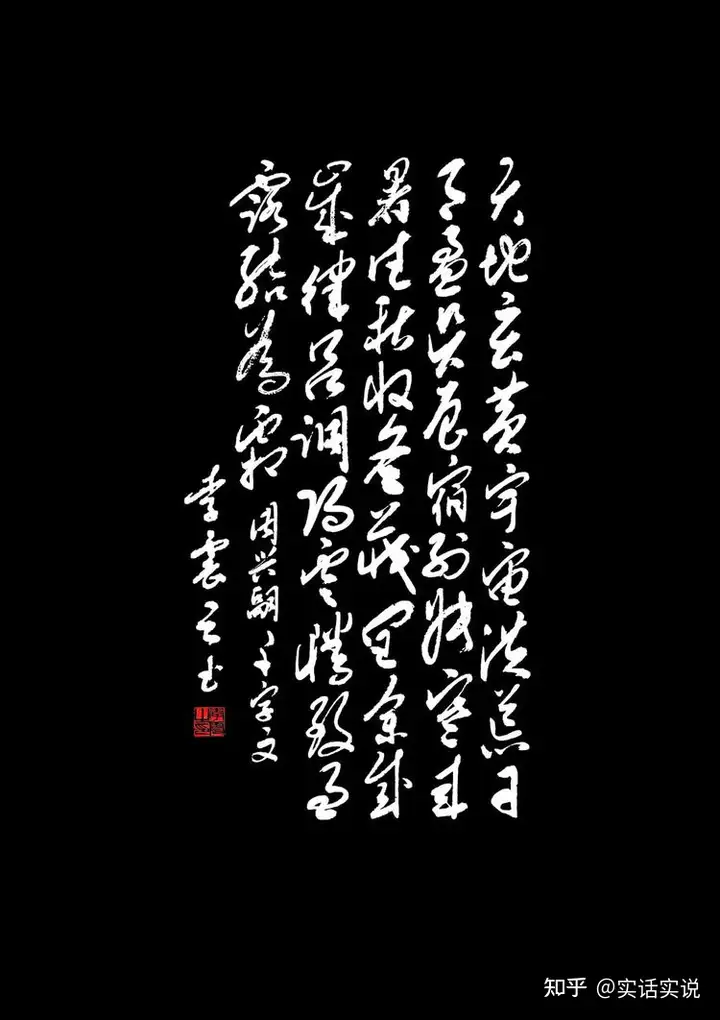 天地玄黄宇宙洪荒日
月盈昃辰宿列張寒来
暑往秋收冬藏閏余成
歲律吕調陽雲騰致雨
露結為霜 周兴嗣千字文
李震书
知乎 @实话实说